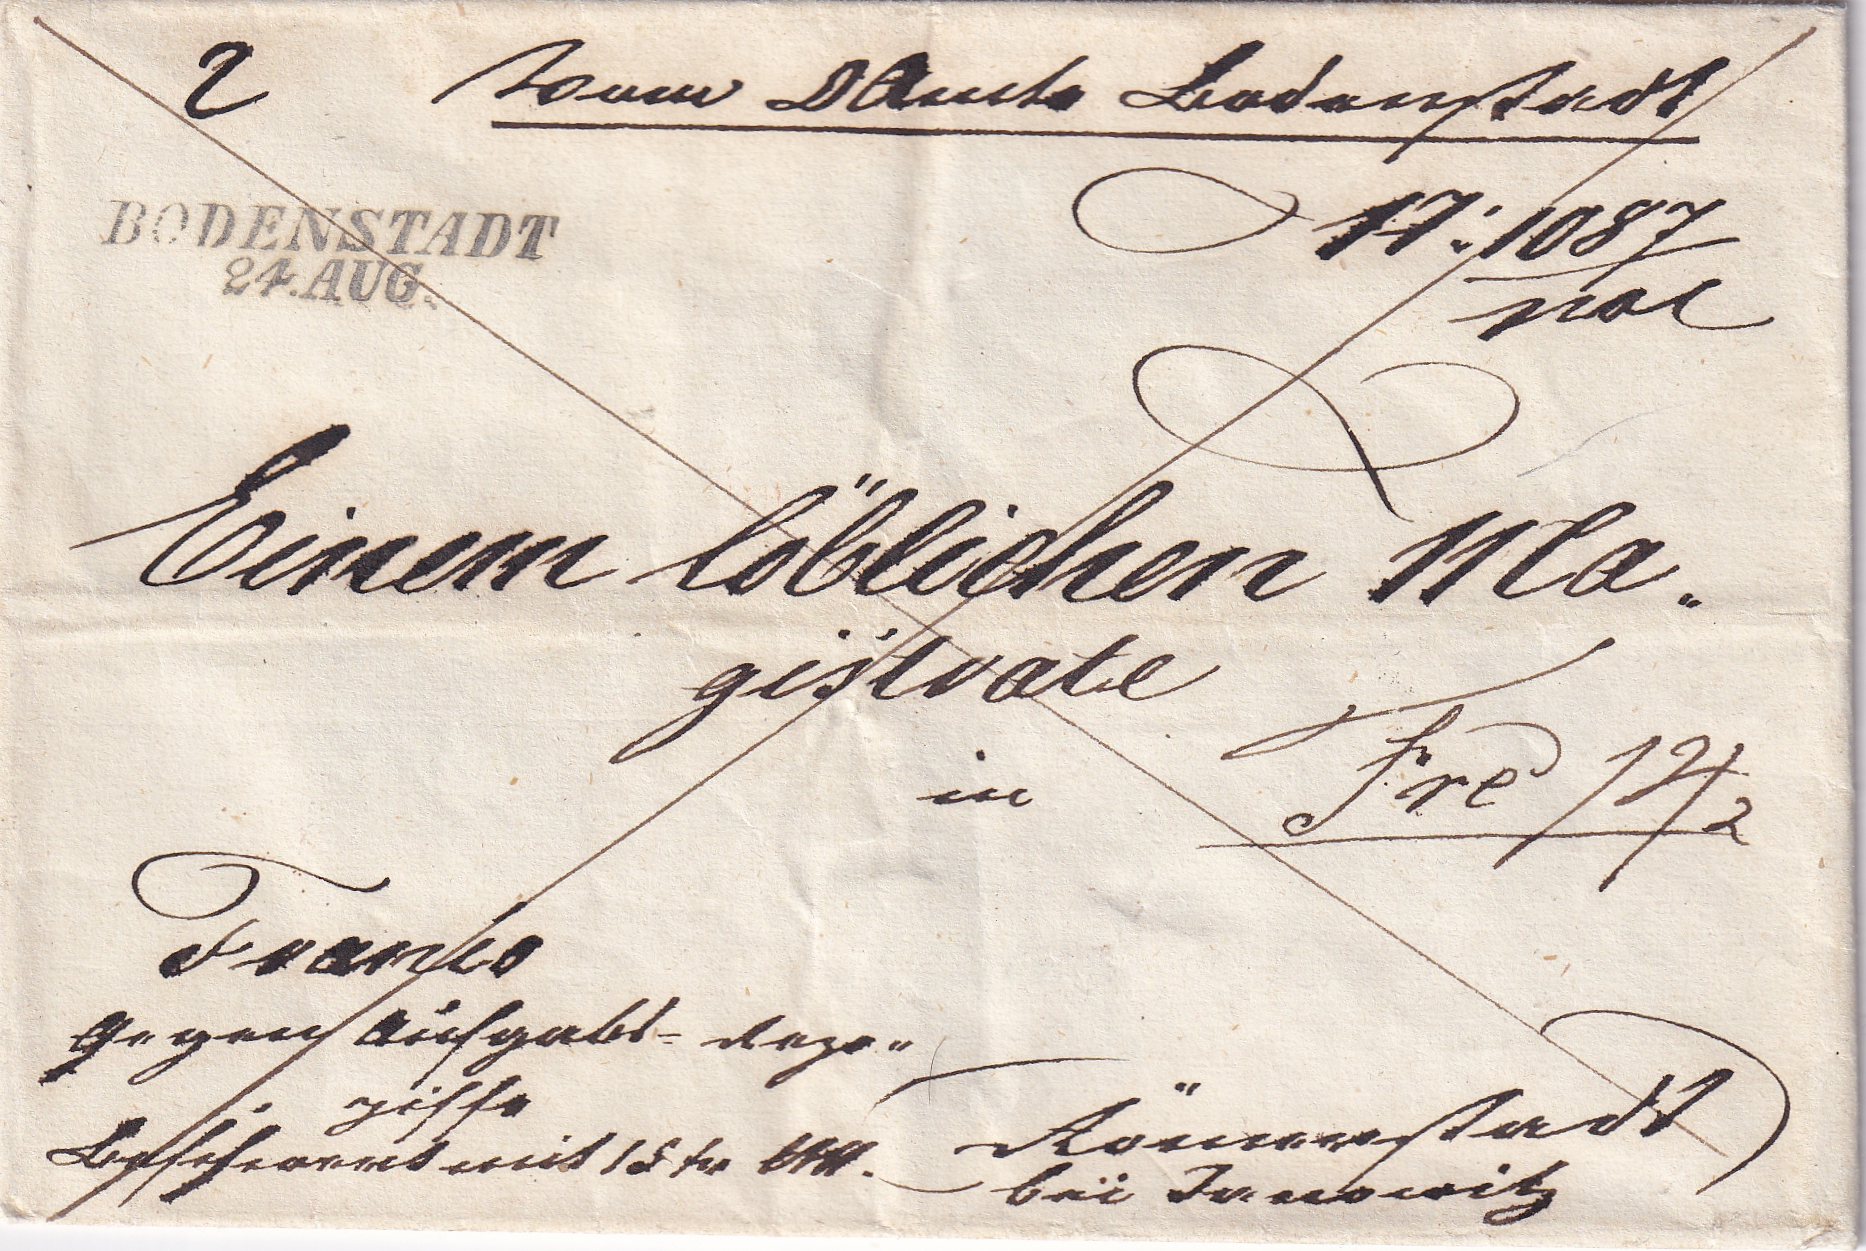 2 Vom DAmte Bodenstadt
BODENSTADT
24.AUG.
N: 1087
Einem löblichen Ma„
gistrate
in
Fro 12/2
Franko
Gegen Aufgabs-Reze„
pisse
Beschwert mit 18 kr
Römerstadt
bei Janowitz